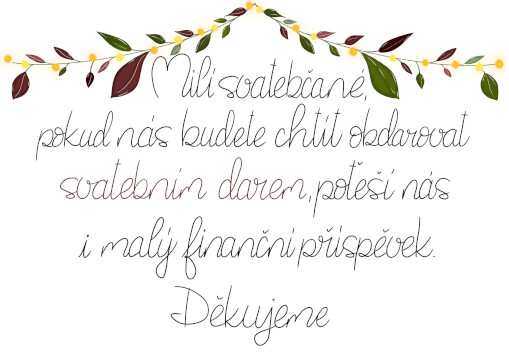 Milí svatebčané,
pokud nás budete chtít obdarovat
svatebním darem, potěší nás
i malý finanční příspěvek.
Děkujeme